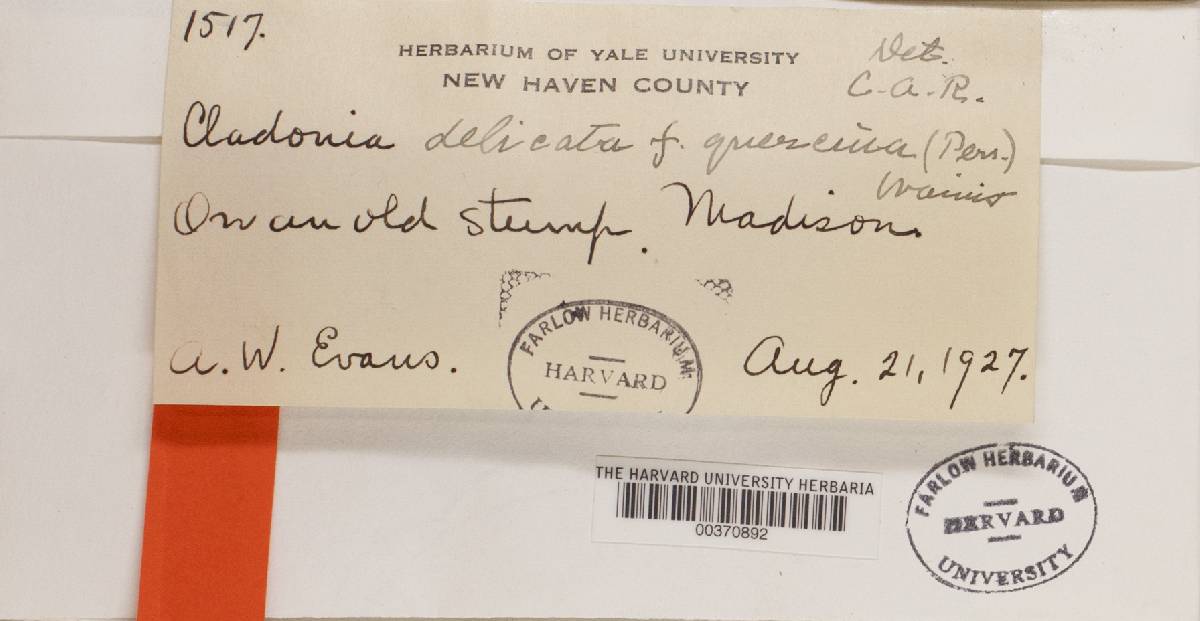 1517.
HERBARIUM OF YALE UNIVERSITY
NEW HAVEN COUNTY
Det.
C. A. R.
Cladonia delicata f. quercina (Pers.)
Wainio
On an old stump. Madison.
FARLOW HERBARIUM
HARVARD
A. W. Evans.
Aug. 21, 1927.
THE HARVARD UNIVERSITY HERBARIA
00370892
FARLOW HERBARIUM
HARVARD
UNIVERSITY